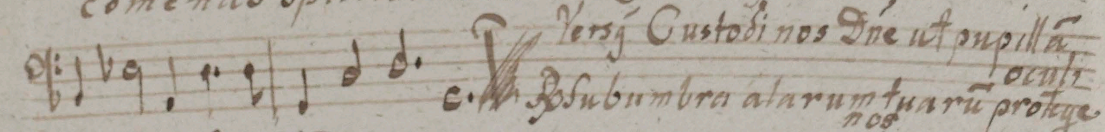 comendo spi
Versꝰ Custodi nos Dn̄e ut pupillā
oculi
℟ Sub umbra alarum tuarū protege
nos